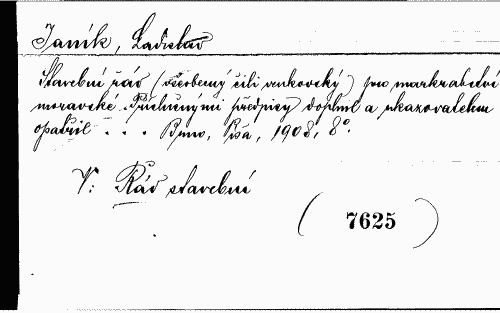 Janík, Ladislav
Stavební řád (všeobecný čili venkovský) pro markrabství
moravské. Příslušnými předpisy doplnil a ukazovatelem
opatřil . . . Brno, Píša, 1908, 8°.
V: Řád stavební
(7625)